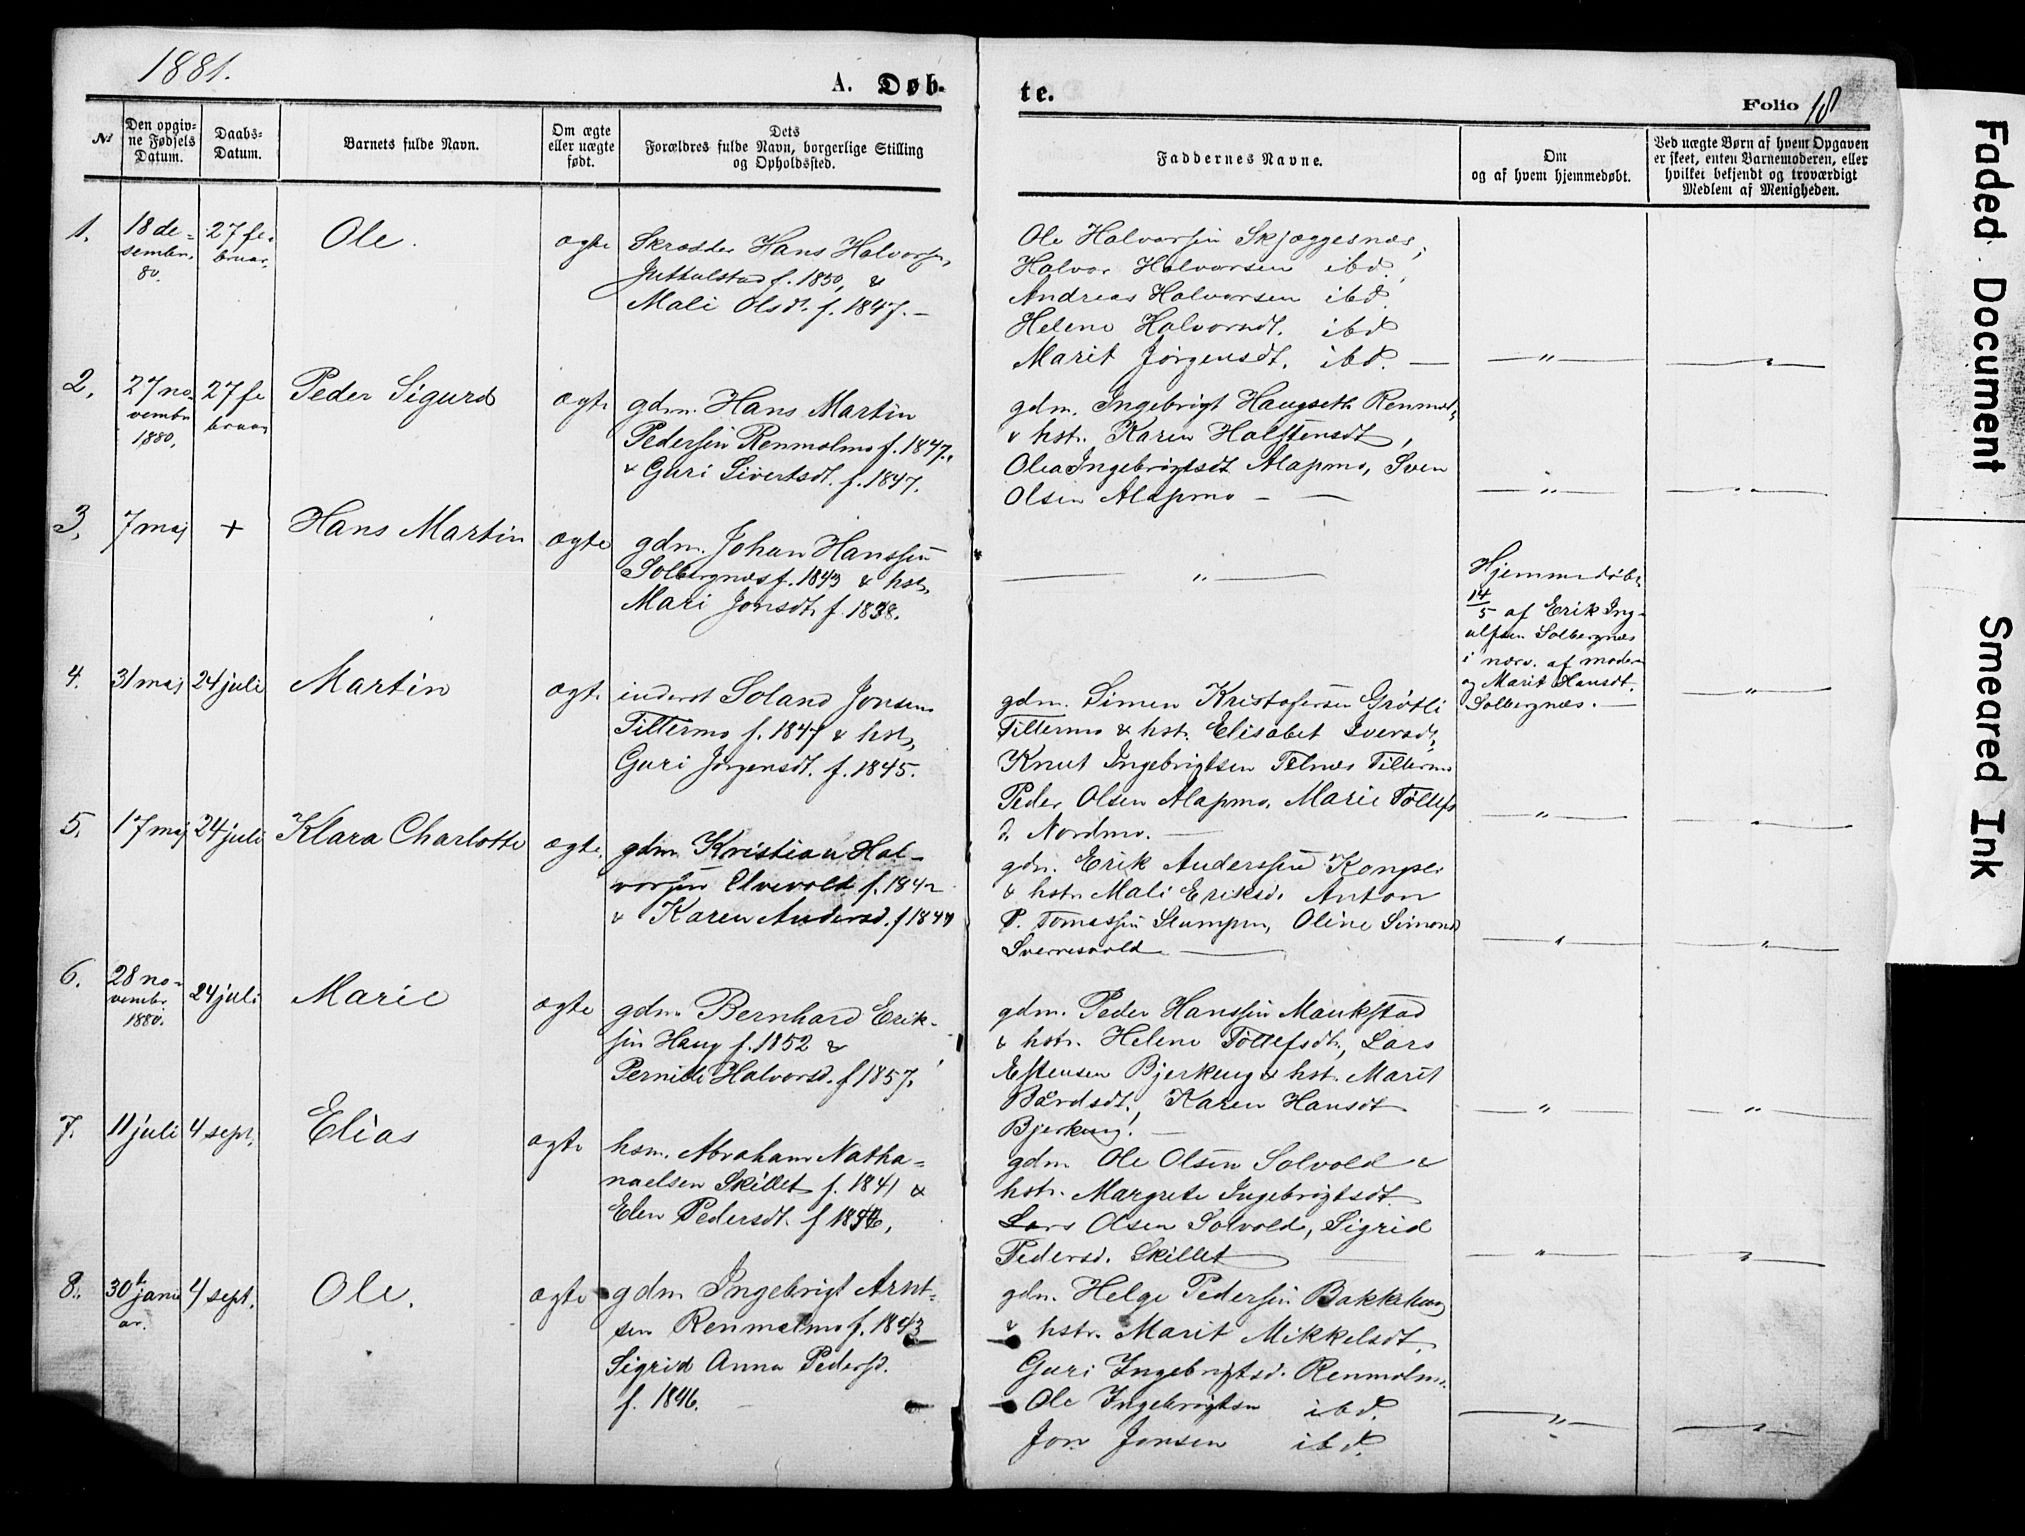 1881.
A. Døb-
te.
Folio 18
№
Den opgiv-
ne Fødsels
Datum.
Daabs-
Datum.
Barnets fulde Navn.
Om ægte
eller uægte
født.
Dets
Forældres fulde Navn, borgerlige Stilling
og Opholdssted.
Faddernes Navne.
Om
og af hvem hjemmedøbt.
Ved uægte Børn af hvem Opgaven
er skeet, enten Barnemoderen, eller
hvilket bekjendt og troværdigt
Medlem af Menigheden.
1.
18 de-
sember
80.
27 fe-
bruar.
Ole.
ægte
Skrædder Hans Halvorsen
f. 1850, &
Mali Olsdt. f. 1847. –
Ole Halvorsen Skjæggesnæs,
Halvor Halvorsen ibd.
Andreas Halvorsen ibd.
Helene Halvorsdt. ibd
Marit Jørgensdt. ibd. —
— " —
2.
27 no-
vembr
1880.
27 fe
bruar
Peder Sigurd
ægte
gdm. Hans Martin
Pedersen Renmælmo f. 1847.,
& Guri Sivertsdt. f. 1847.
gdm. Ingebrigt Haugseth
& hstr. Karen Halstensdt,
Olea Ingebrigtsdt Alapmo, Sven
Olsen Alapmo — —
— " —
3.
7 maj
+
Hans Martin
ægte
gdm. Johan Hanssen
Solbergnæs f. 1843 & hstr,
Mari Jonsdt. f. 1838.
— " —
Hjemmedøbt
14/5 af Erik Ing-
olfsen Solbergnæs
i nærv. af moder
og Marit Hansdt.
Solbergnæs. —
— " —
4.
31 maj
24 juli
Martin
ægt.
inderst Jonsen
Tiltermo f. 1847 & hstr,
Guri Jørgensdt. f. 1845.
gdm. Simen Kristofersen Grøtli
Tiltermo & hstr. Elisabet
Knut Ingebrigtsen Tiltermo
Peder Olsen Alapmo, Marie
d. Nordmo. —
— " —
5.
17 maj
24 juli
Klara Charlotte
ægte.
gdm. Kristian Hal-
vorsen Elvevold f. 1842
& Karen Andersd. f 1844
gdm. Erik Anderssen
& hstr. Mali Eriksd. Anton
P. Tomassen Oline Simonsd
—
6.
28 no-
vembr.
1880.
24 juli
Marie
ægte
gdm. Bernhard Erik-
sen Haug f. 1852 &
Pernille Halvorsd. f 1857.
gdm. Peder Hanssen Maukstad
& hstr. Helene Tollefsdt., Lars
Estensen Bjerkeng & hst. Marit
Bærdsdt., Karen Hansdt
Bjerkeng. —
— " —
7.
11 juli
4 sept.
Elias
ægte
hsm. Abraham Natha-
naelsen Skillet f. 1841 &
Elen Pedersdt. f
gdm Ole Olsen Solvold &
hstr. Margrete Ingebrigtsdt
Lars Olsen Solvold, Sigrid
Pedersd. Skillet —
8.
30t janu
ar.
4 sept.
Ole.
ægte
gdm Ingebrigt Arnt-
sen Renmælmo f. 1843
Sigrid Anna Pedersd.
f. 1846. –
gdm. Helge Pedersen Bakkehaug
& hstr. Marit Mikkelsdt.
Guri Ingebrigtsd. Renmælmo
Ole Ingebrigtsen ibd.
Jon Jonsen ibd.
— " —
Faded Document
Smeared Ink